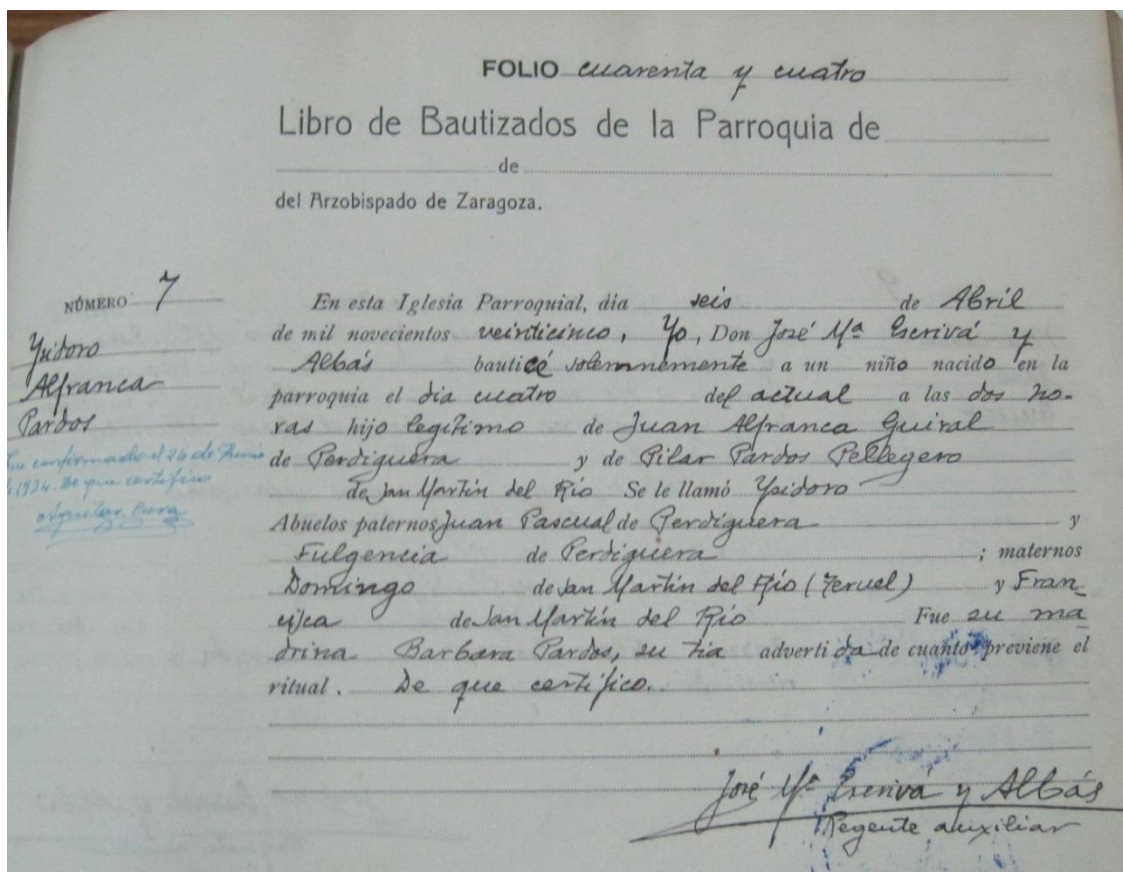 FOLIO cuarenta y cuatro
Libro de Bautizados de la Parroquia de
de
del Arzobispado de Zaragoza.
NÚMERO 7
Ysidoro
Alfranca
Pardos
Fue confirmado el 26 de Junio
de 1934. De que certifico
Aguilar Cura
En esta Iglesia Parroquial, día seis de Abril
de mil novecientos veinticinco, Yo, Don José Mª Escrivá y
Albás bauticé solemnemente a un niño nacido en la
parroquia el día cuatro del actual a las dos ho-
ras hijo legítimo de Juan Alfranca Guiral
de Perdiguera y de Pilar Pardos Pellegero
de San Martín del Río Se le llamó Ysidoro
Abuelos paternos Juan Pascual de Perdiguera y
Fulgencia de Perdiguera ; maternos
Domingo de San Martín del Río (Teruel) y Fran-
cisca de San Martín del Río Fue su ma
drina Barbara Pardos, su tia advertida de cuanto previene el
ritual. De que certifico.
José Mª Escrivá y Albás
Regente auxiliar